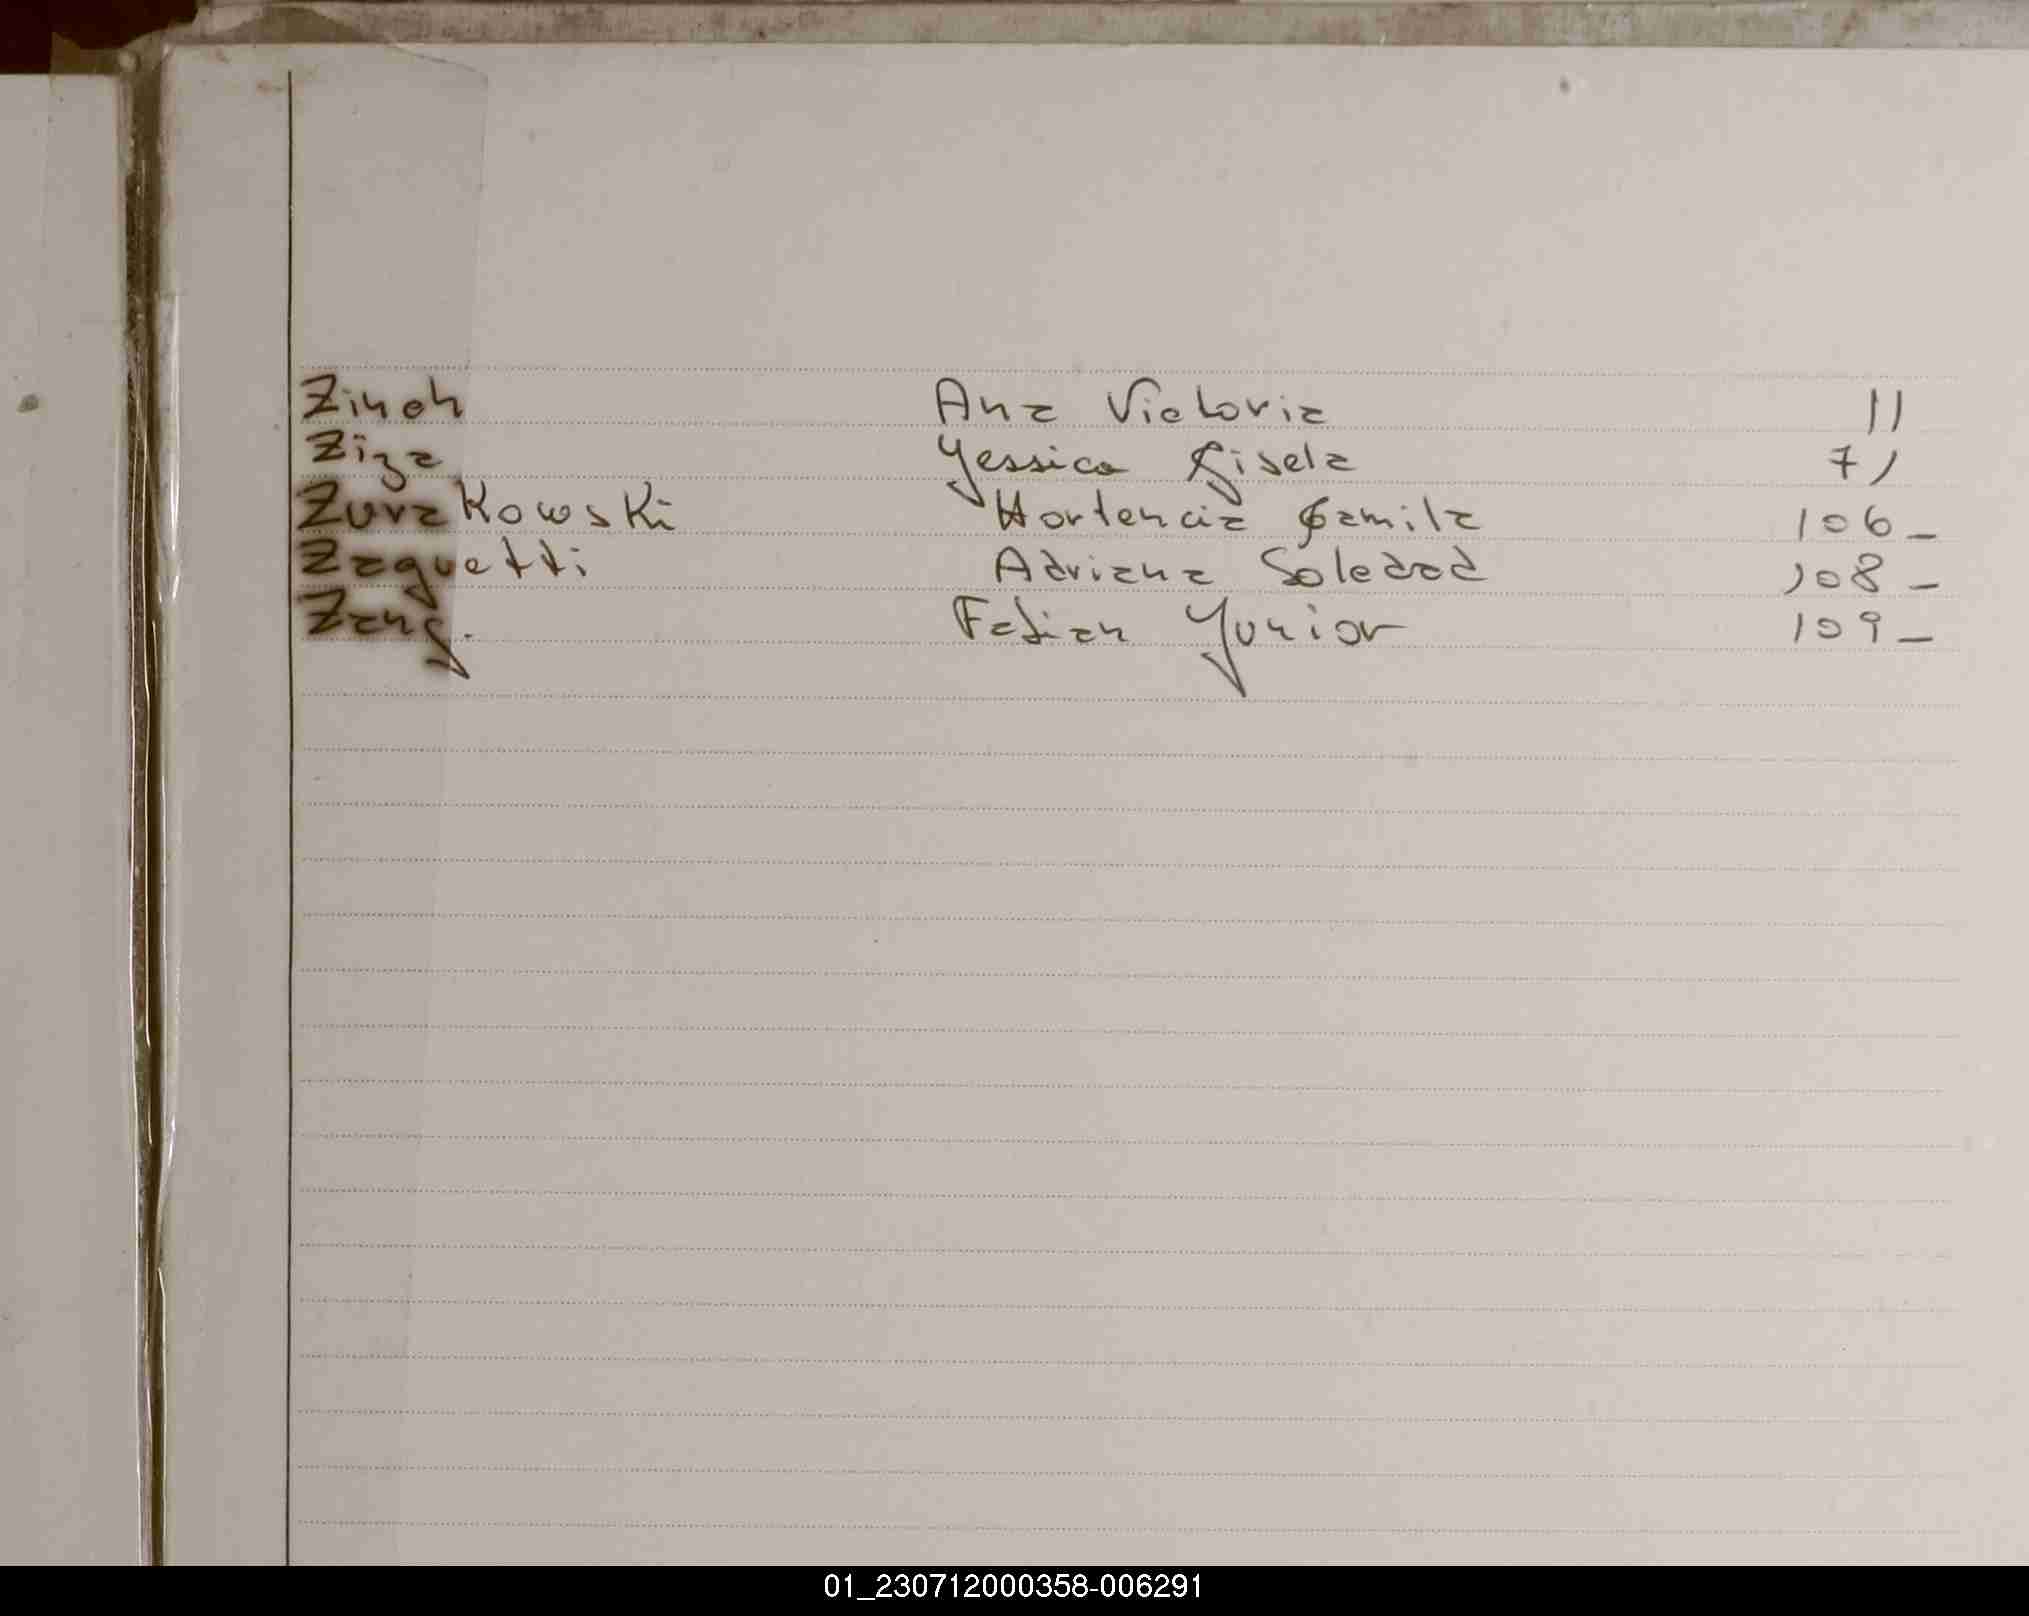 Zinoh Ana Victoria 11
Ziza Yessica Gisela 71
Zurakowski Hortencia Camila 106 -
Zaguetti Adriana Soledad 108 -
Zang. Fabian Yunior 109 -
01_230712000358-006291